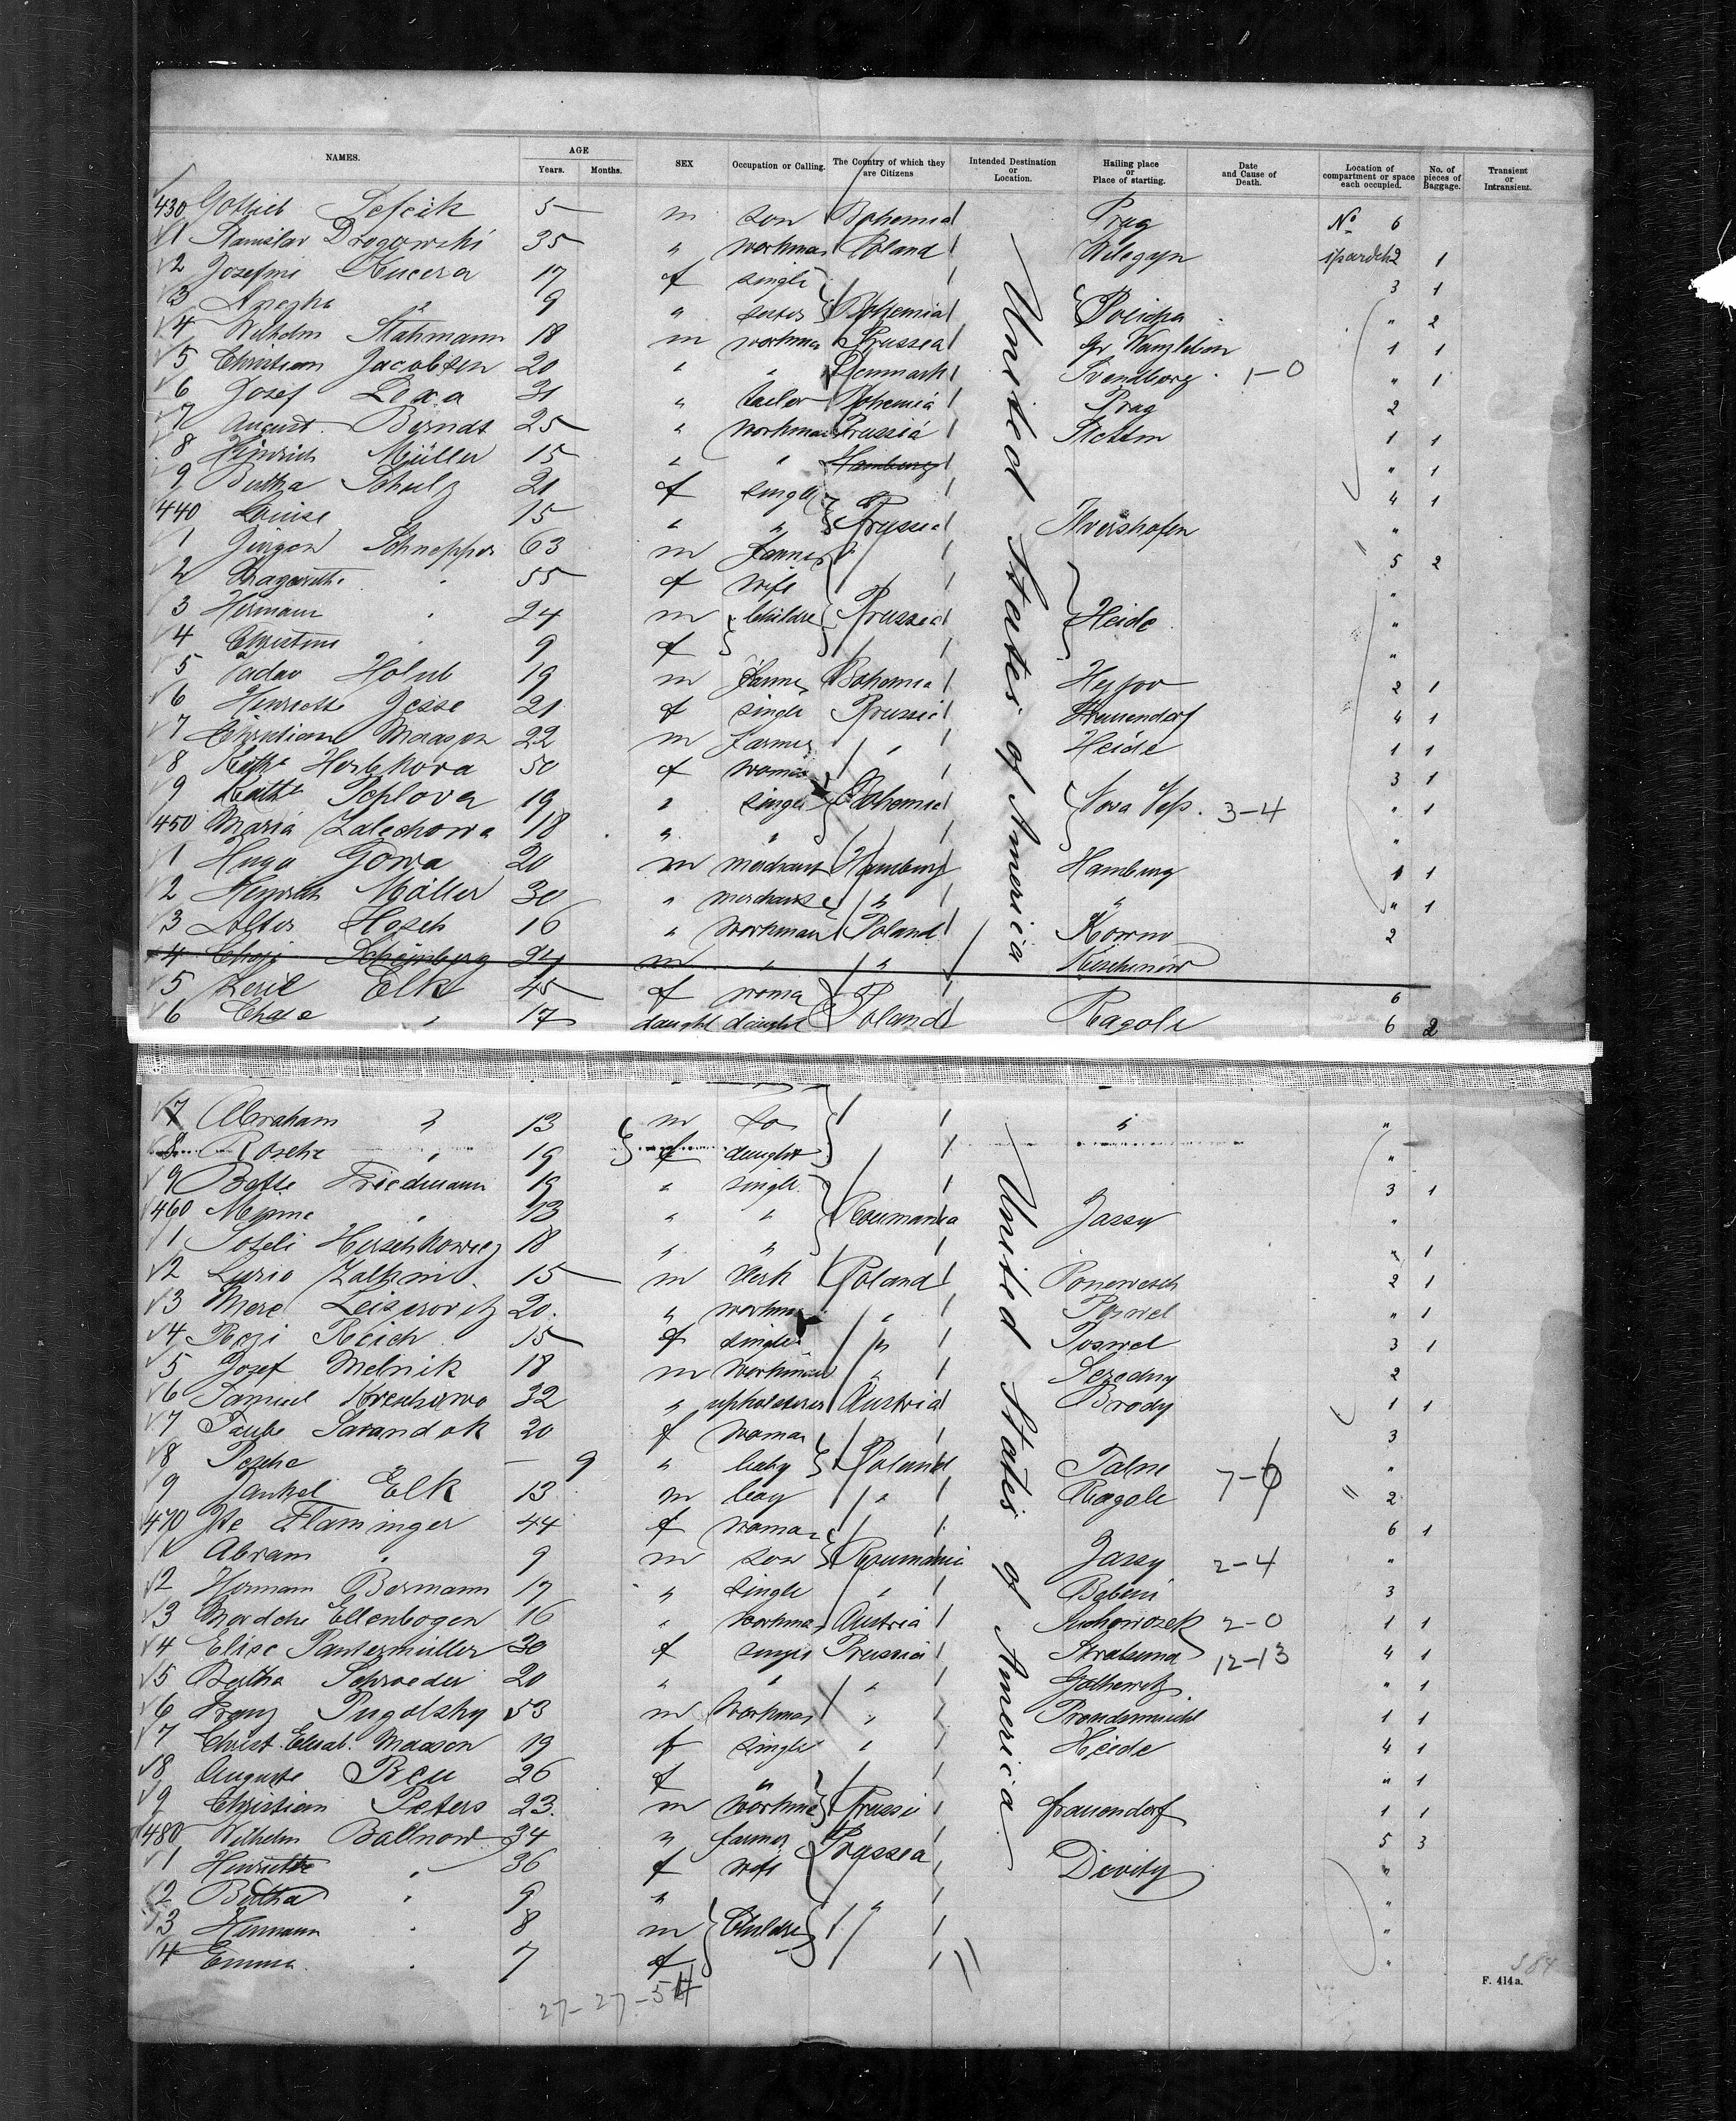 NAMES. AGE Years. Months. SEX Occupation or Calling. The Country of which they are Citizens Intended Destination or Location. Hailing place or Place of starting. Date and Cause of Death. Location of compartment or space each occupied. No. of pieces of Baggage. Transient or Intransient.
430 Gottlieb Sefcik 5 m son Bohemia Prag No 6
1 Stanislav Drogowski 35 " workman Poland 2 1
2 Josefine Kucera 17 f single 3 1
3 " 9 " sister Bohemia " 2
4 Wilhelm Stahmann 18 m workman Prussia Gr Wanzleben 1 1
5 Christian Jacobsen 20 " " Denmark Svendborg 1-0 " 1
6 Josef Lexa 31 " tailor Bohemia Prag 2
7 August Berndt 25 " workman Prussia Stettin 1 1
8 Hinrich Müller 15 " " Hamburg " 1
9 Bertha Schulz 21 f single 4 1
440 Louise " 15 " " Prussia "
1 Jürgen 63 m farmer 5 2
2 Margarethe " 55 f wife "
3 Hermann " 24 m Children Prussia Heide "
4 Christine " 9 f "
5 Holub 19 m farmer Bohemia 2 1
6 Henriette Jesse 21 f single Prussia 4 1
7 Christian Maassen 22 m farmer " Heide 1 1
8 Kath. 50 f woman 3 1
9 Kath. 19 " single Bohemia Nova Ves. 3-4 " 1
450 Maria Zalechowa 18 " " "
1 Hugo Gowa 20 m merchant Hamburg Hamburg 1 1
2 Heinrich Möller 30 " " " " 1
3 Hosch 16 " workman Poland Kowno 2
4 Schönberg 24 m " " Kischinew
5 Elk 45 f woman 6
6 Chase " 17 daught daught Poland Ragole 6 2
United States of America
7 Abraham " 13 m so " "
8 Rosche " 19 f daught "
9 Friedmann 19 " single 3 1
460 " 13 " " Roumania Jassy "
1 Hirschkowicz 18 " " " 1
2 Zalkin 15 m clerk Poland Ponewesch 2 1
3 Mere Leiserovitz 20 " workman " Poswel " 1
4 Rezi Reich 15 f single " Poswel 3 1
5 Josef Melnik 18 m workman " 2
6 Samuel 32 " upholsterer Austria Brody 1 1
7 Taube Sarandok 20 f woman 3
8 Pesche 9 " baby Poland Talne 7-0 "
9 Jankel Elk 13 m boy " Ragole 2
470 Ite Flaminger 44 f woman 6 1
1 Abram " 9 m son Roumania Jassy 2-4 "
2 Hermann Bermann 17 " single " 3
3 Mordche Ellenbogen 16 " workman Austria 2-0 1 1
4 Elise Pantermüller 30 f single Prussia 12-13 4 1
5 Bertha Schroeder 20 " " " " 1
6 Franz 53 m workman " 1 1
7 Christ. Elisab. Maassen 19 f single " Heide 4 1
8 Auguste Beu 26 f " " 1
9 Christian Peters 23 m workman Prussia Frauendorf 1 1
480 Wilhelm Ballnow 34 " farmer Prussia 5 3
1 Henriette " 36 f wife "
2 Bertha " 9 " "
3 Hermann " 8 m Children " "
4 Emma " 7 f "
United States of America
27-27-54
584
F. 414a.